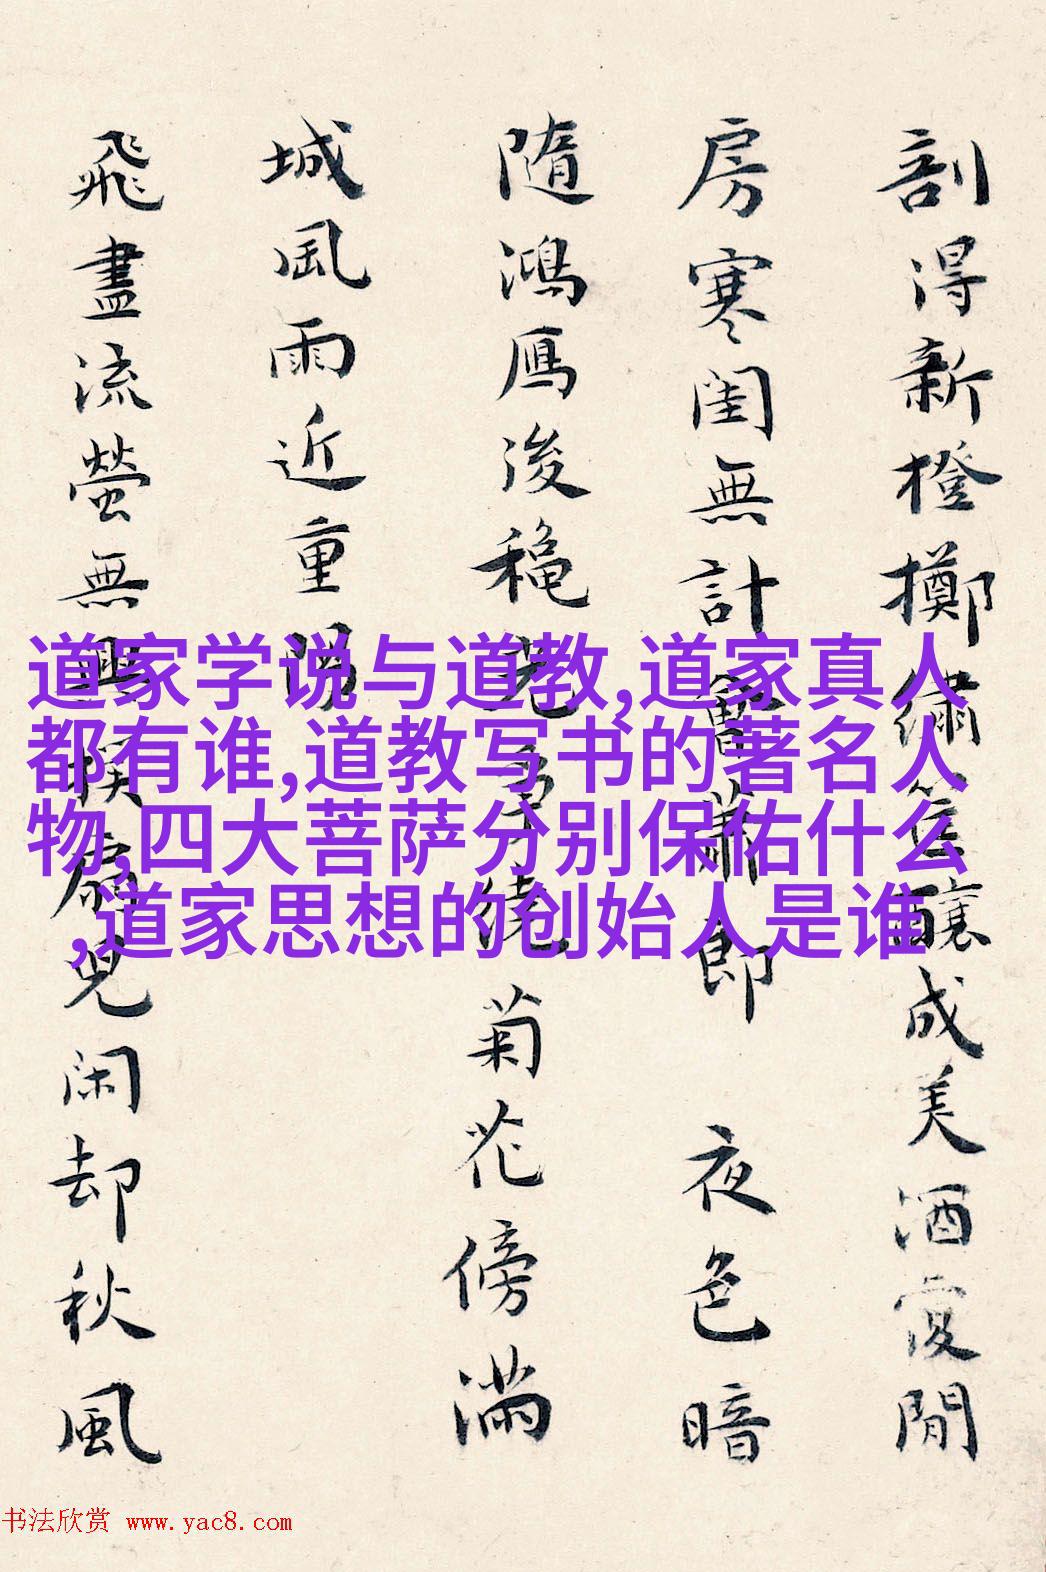 剖得新橙擲繡筐釀成美酒愛閒
房寒閨無計會蕭郎 夜色暗
隨鴻鴈後穐光繞菊花傍滿
城風雨近重陽
飛盡流螢無興撲扇兒閑却秋風
道家学说与道教,道家真人
都有谁,道教写书的著名人
物,四大菩萨分别保佑什么
,道家思想的创始人是谁
书法欣赏 www.yac8.com